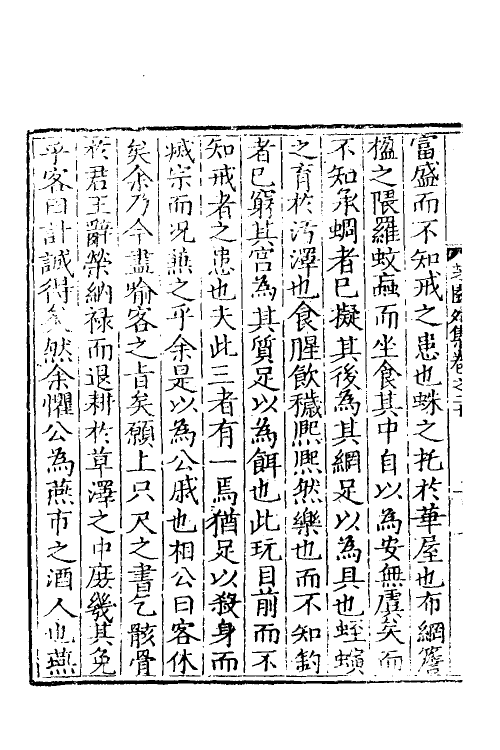 富盛而不知戒之患也蛛之托於華屋也布網簷
楹之隈羅蚊蝱而坐食其中自以為安無虞矣而
不知承蜩者已擬其後為其網足以為具也蛭螾
之育於汚澤也食腥飲穢熙熙然樂也而不知釣
者已窮其宫為其質足以為餌也此玩目前而不
知戒者之患也夫此三者有一焉猶足以殺身而
滅宗而况兼之乎余是以為公戚也相公曰客休
矣余乃今盡喻客之旨矣願上只尺之書乞骸骨
於君王辭榮納禄而退耕於草澤之中庶幾其免
乎客曰計誠得矣然余懼公為燕市之酒人也燕
集卷之